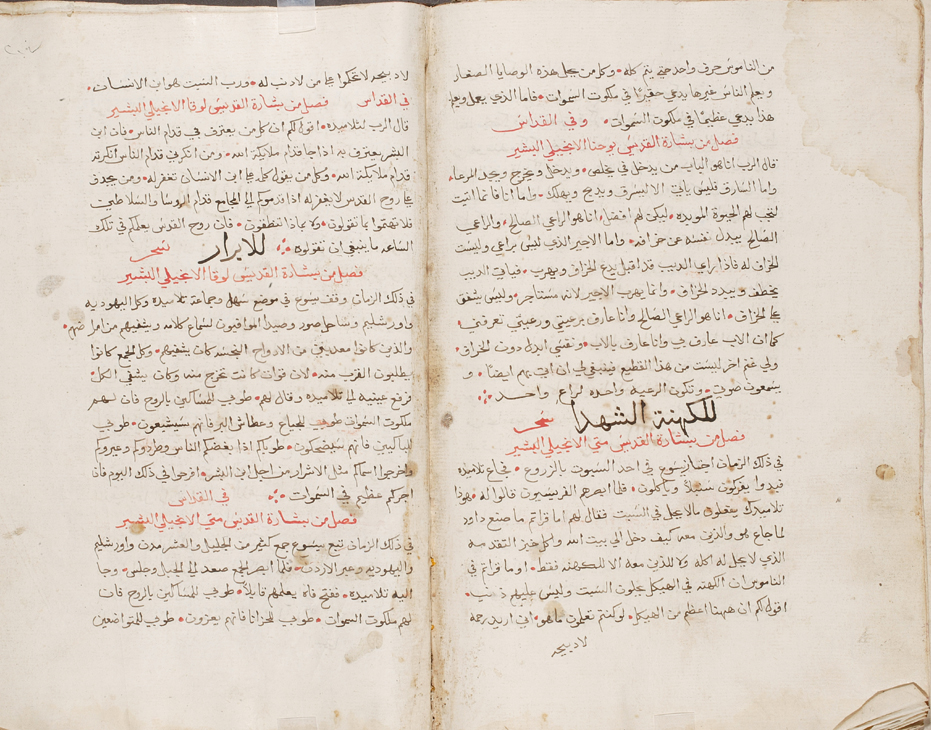 من الناموس حرف واحد حتي يتم كله • وكل من يحل هذه الوصايا الصغار
ويعلم الناس غيرها يدعي حقيرًا في ملكوت السموات • فاما الذي يعمل ويعلم
هذا يدعي عظيمًا في ملكوت السموات • وفي القداس
فصل من بشارة القديس يوحنا الانجيلي البشير
قال الرب انا هو الباب من يدخل بي يخلص • ويدخل ويخرج ويجد المرعا •
واما السارق فليس ياتي الا ليسرق ويدبح ويهلك • واما انا فانما اتيت
لتجب لهم الحيوة الموبده • ليكن لهم افضل • انا هو الراعي الصالح • والراعي
الصالح يبدل نفسه عن خرافه • واما الاجير الذي ليس براعي وليست
الخراف له فاذا راي الديب قد اقبل يدع الخراف ويهرب • فياتي الديب
يخطف ويبدد الخراف • وانما يهرب الاجير لانه مستاجر • وليس يشفق
علي الخراف • انا هو الراعي الصالح وانا عارف برعيتي ورعيتي تعرفني •
كما ان الاب عارف بي وانا عارف بالاب • ونفسي ابدل دون الخراف •
ولي غنم اخر ليست من هذا القطيع فينبغي لي ان اتي بهم ايضًا • و
يسمعون صوتي • وتكون الرعيه واحده لراع واحد
للكهنة الشهدا سحر
فصل من بشارة القديس متي الانجيلي البشير
في ذلك الزمان اجتاز يسوع في احد السبوت بالزروع • فجاع تلاميذه
فبدوا يفركون سنبلًا وياكلون • فلما ابصرهم الفريسيون قالوا له • هوذا
تلاميدك يفعلون ما لا يحل في السبت فقال لهم اما قراتم ما صنع داود
لما جاع هو والذين معه كيف دخل الي بيت الله واكل خبز التقدمه
الذي لا يحل له اكله ولا للذين معه الا للكهنه فقط • او ما قراتم في
الناموس ان الكهنه في الهيكل يحلون السبت وليس عليهم ذنب •
اقول لكم ان ههنا اعظم من الهيكل • لو كنتم تعلمون ما هو • اني اريد رحمة
لا دبيحه
لا دبيحه لا تحكموا علي من لا ذنب له • ورب السبت هو ابن الانسان •
في القداس فصل من بشارة القديس لوقا الانجيلي البشير
قال الرب لتلاميذه • اقول لكم ان كل من يعترف بي قدام الناس • فان ابن
البشر يعترف به اذا جا قدام ملايكة الله • ومن انكرني قدام الناس انكرته
قدام ملايكة الله • وكل من يقول كلمه علي ابن الانسان تغفر له • ومن يجدف
علي روح القدس لا يغفر له اذا قدموكم الي المجامع قدام الروسا والسلاطين
فلا تهتموا بما تقولون • ولا بماذا تنطقون • فان روح القدس يعلمكم في تلك
الساعه ما ينبغي ان تقولوه للابرار سحر
فصل من بشارة القديس لوقا الانجيلي البشير
في ذلك الزمان وقف يسوع في موضع سهل وجماعة تلاميذه وكل اليهوديه
واورشليم وساحل صور وصيدا الموافيون لسماع كلامه ويشفيهم من امراضهم •
والذين كانوا معذبين من الارواح النجسه كان يشفيهم • وكل الجمع كانوا
يطلبون القرب منه • لان قوات كانت تخرج منه وكان يشفي الكل •
فرفع عينيه الي تلاميذه وقال لهم • طوبي للمساكين بالروح فان لهم
ملكوت السموات طوبي للجياع وعطاش البر فانهم سيشبعون • طوبي
للباكين فانهم سيضحكون • طوباكم اذا بغضكم الناس وطردوكم وعيروكم
واخرجوا اسماكم مثل الاشرار من اجل ابن البشر • افرحوا في ذلك اليوم فان
اجركم عظيم في السموات في القداس
فصل من بشارة القديس متي الانجيلي البشير
في ذلك الزمان تبع يسوع جمع كثير من الجليل والعشر مدن واورشليم
واليهوديه وعبر الاردن • فلما ابصر الجمع صعد الي الجبل وجلس • وجا
اليه تلاميذه • ففتح فاه يعلمهم قايلًا • طوبي للمساكين بالروح فان
لهم ملكوت السموات • طوبي للحزانا فانهم يعزون • طوبي للمتواضعين